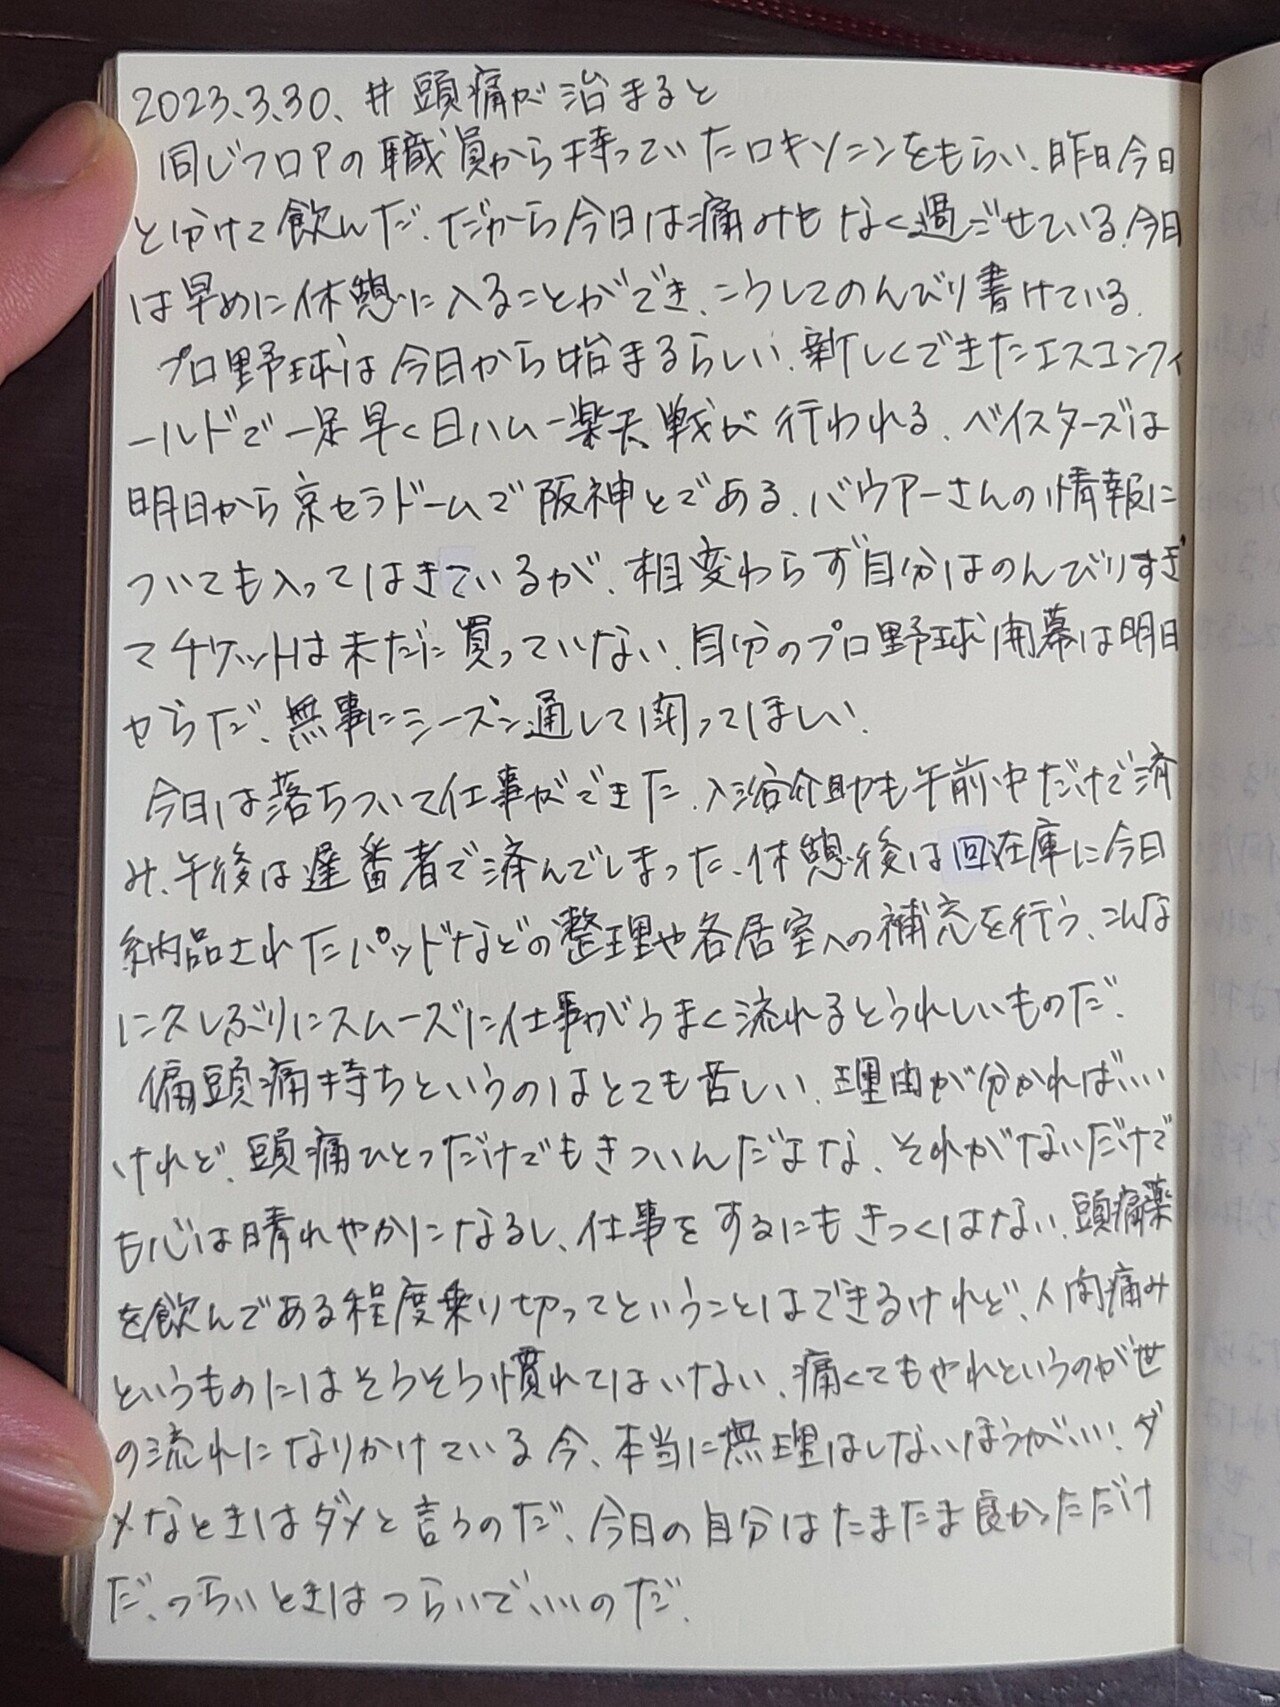 2023.3.30. #頭痛が治まると
同じフロアの職員から持っていたロキソニンをもらい、昨日今日
と分けて飲んだ。だから今日は痛みもなく過ごせている。今日
は早めに休憩に入ることができ、こうしてのんびり書けている。
プロ野球は今日から始まるらしい。新しくできたエスコンフィ
ールドで一足早く日ハムー楽天戦が行われる。ベイスターズは
明日から京セラドームで阪神とである。バウアーさんの情報に
ついても入ってはきているが、相変わらず自分はのんびりすぎ
てチケットは未だに買っていない。自分のプロ野球開幕は明日
からだ。無事にシーズン通して闘ってほしい。
今日は落ちついて仕事ができた。入浴介助も午前中だけで済
み、午後は遅番者で済んでしまった。休憩後は回在庫に今日
納品されたパッドなどの整理や各居室への補充を行う。こんな
に久しぶりにスムーズに仕事がうまく流れるとうれしいものだ。
偏頭痛持ちというのはとても苦しい。理由が分かればいい
けれど、頭痛ひとつだけでもきついんだよな。それがないだけで
も心は晴れやかになるし、仕事をするにもきつくはない。頭痛薬
を飲んである程度乗り切ってということはできるけれど、人間痛み
というものにはそうそう慣れてはいない。痛くてもやれというのが世
の流れになりかけている今、本当に無理はしないほうがいい。ダ
メなときはダメと言うのだ。今日の自分はたまたま良かっただけ
だ。つらいときはつらいでいいのだ。